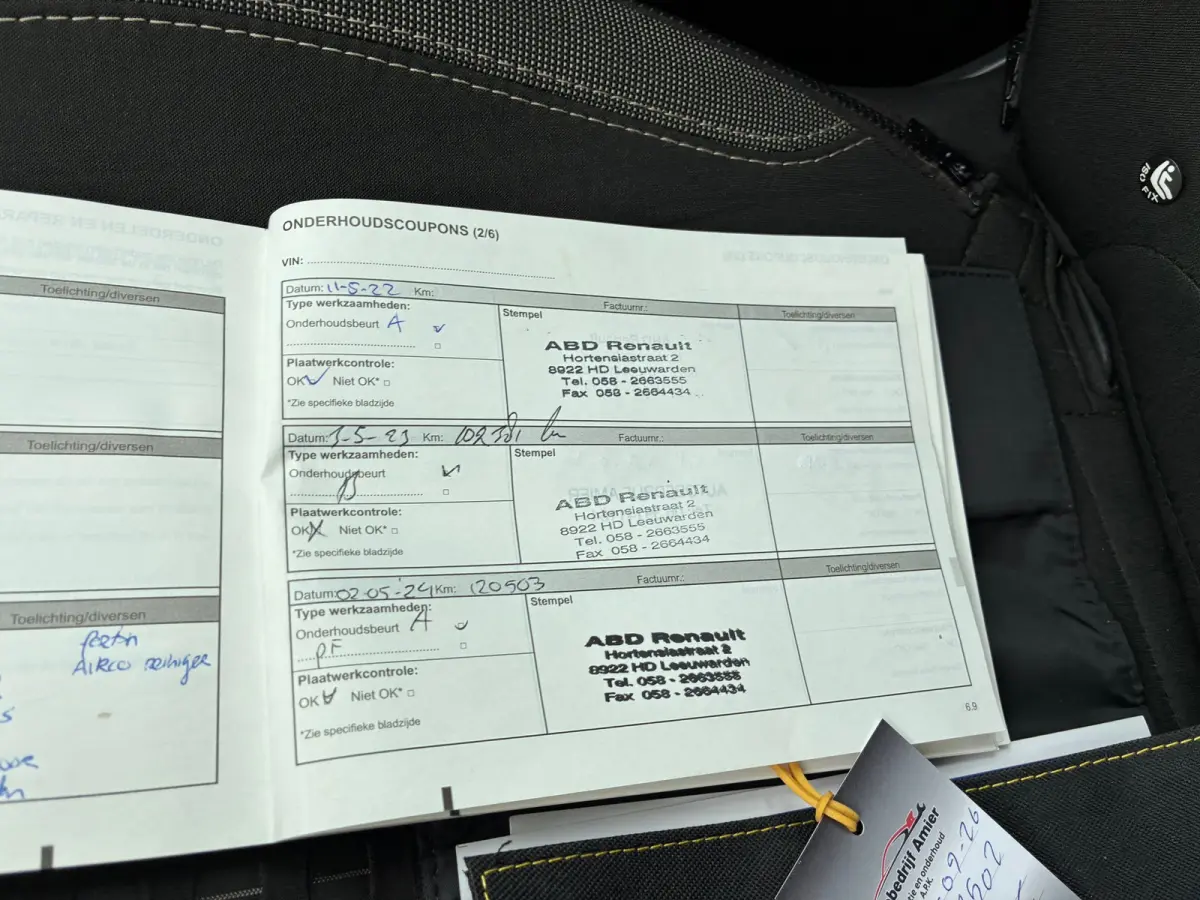 Toelichting/diversen
Toelichting/diversen
Toelichting/diversen
AIRCO reiniger
ONDERHOUDSCOUPONS (2/6)
VIN:
Datum: 11-5-22 Km: Factuurnr.: Toelichting/diversen
Type werkzaamheden: Stempel
Onderhoudsbeurt A
Plaatwerkcontrole:
OK Niet OK*
*Zie specifieke bladzijde
ABD Renault
Hortensiastraat 2
8922 HD Leeuwarden
Tel. 058 - 2663555
Fax 058 - 2664434
Datum: 1-5-23 Km: Factuurnr.: Toelichting/diversen
Type werkzaamheden: Stempel
Onderhoudsbeurt
B
Plaatwerkcontrole:
OK Niet OK*
*Zie specifieke bladzijde
ABD Renault
Hortensiastraat 2
8922 HD Leeuwarden
Tel. 058 - 2663555
Fax 058 - 2664434
Datum: 02-05-'24 Km: 120503 Factuurnr.: Toelichting/diversen
Type werkzaamheden: Stempel
Onderhoudsbeurt A
PF
Plaatwerkcontrole:
OK Niet OK*
*Zie specifieke bladzijde
ABD Renault
Hortensiastraat 2
8922 HD Leeuwarden
Tel. 058 - 2663555
Fax 058 - 2664434
6.9
bedrijf Amier
tie en onderhoud
A.P.K.
09-26
602
ISO FIX